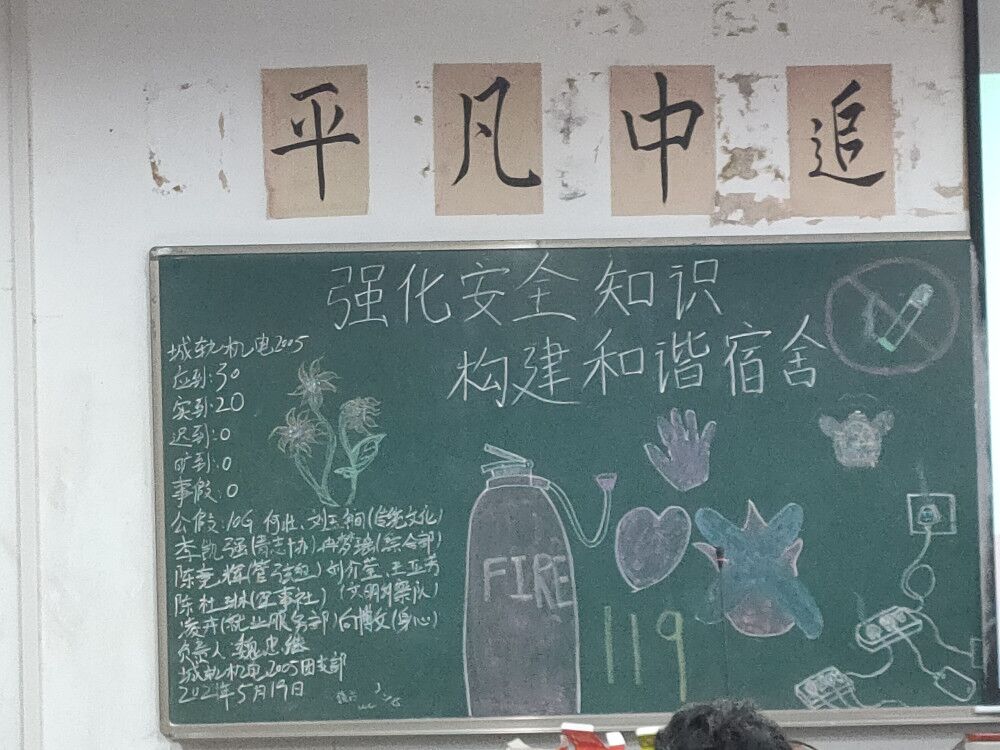 平凡中追
强化安全知识
构建和谐宿舍
城轨机电2005
应到:30
实到:20
迟到:0
旷到:0
事假:0
公假:10 何胜、刘(传统文化)
李凯强(青志协)冉梦瑶(综合部)
陈竞辉(管弦乐)刘介莹、王亚芳
陈杜琳(军事社)(文明纠察队)
凌卉(就业服务部)向博文(身心)
负责人 魏忠继
城轨机电2005团支部
2021年5月19日
FIRE
119